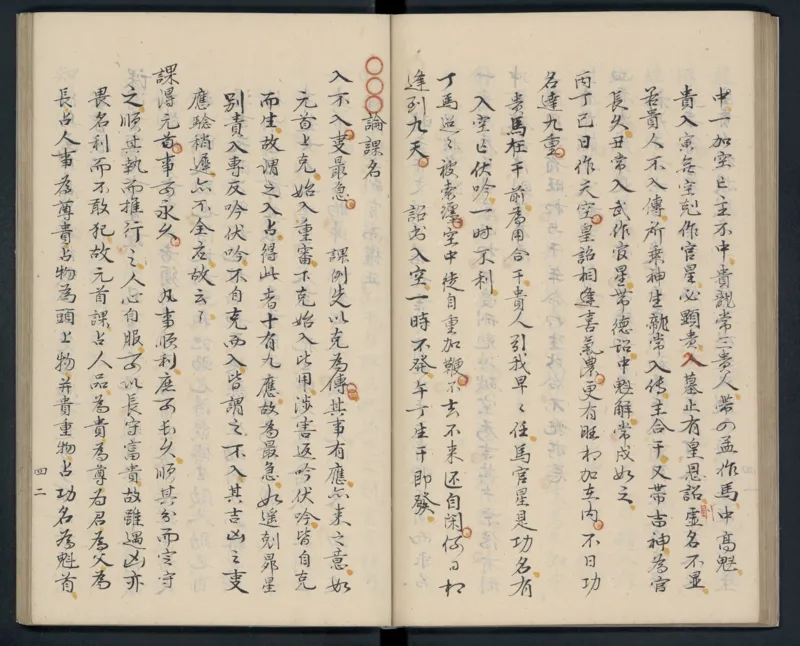 中一加空亡主不中貴親常三貴人帶印益作馬中高魁
貴入寅无空剋作官星必顯貴入墓止有皇恩詔虛名不显
若貴人不入傳所乘神生龍常入傳主合干又帶吉神為官
長久丑常入武作官星帶德詔中魁解常戌如之
丙丁巳日作天空皇詔相逢喜氣農更有旺相加在内不日功
名達九重
貴馬在干前為用合干貴人引我早早任馬官星是功名有
入空亡伏吟一时不利
丁馬迢迢被索溼空中徒自重加鞭不去不来还自閑何日相
逢到九天 詔书入空一時不發午丁生干即發
論課名
入不入支最急 課例先以克為傳其事有應亦来之意如
元首上克始入重審下克始入此用涉害返吟伏吟皆自克
而生故謂之入占得此者十有九應故為最急如遥剋昴星
別責入專反吟伏吟不自克而入皆謂之不入其吉凶之支
應驗稍遲亦不全应故云云
課得元首事可永久 凡事順利庶可长久順其分而言守
之順其執而推行之人心自服可以長守富貴故雖遇凶亦
畏名利而不敢犯故元首課占人品為貴為尊为君為父為
長占人事為尊貴占物為頭上物并貴重物占功名為魁首
四二